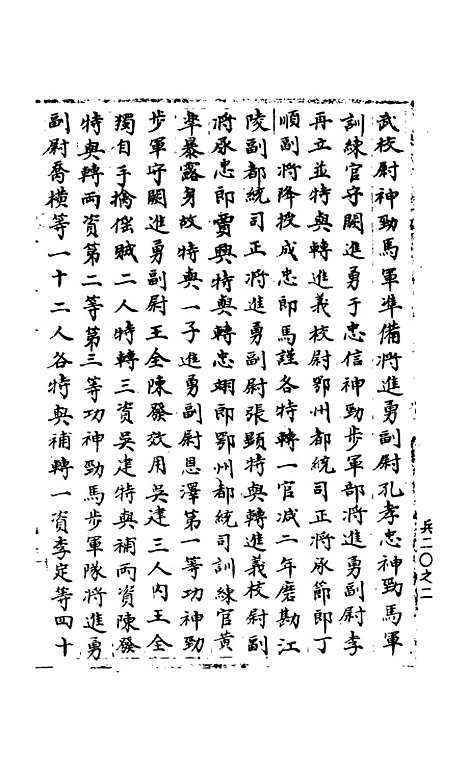 武校尉神勁馬軍準備將進勇副尉孔孝忠神勁馬軍
訓練官守闕進勇于忠信神勁步軍部將進勇副尉李
再立並特與轉進義校尉鄂州都統司正將承節郎丁
順副將降授成忠郎馬謹各特轉一官減二年磨勘江
陵副都統司正將進勇副尉張顯特與轉進義校尉副
將承忠郎賈興特與轉忠翊郎鄂州都統司訓練官黃
皐暴露身故特與一子進勇副尉恩澤第一等功神勁
步軍守闕進勇副尉王全陳發效用吳建三人內王全
獨自手擒傜賊二人特轉三資吳建特與補兩資陳發
特與轉兩資第二等第三等功神勁馬步軍隊將進勇
副尉喬橫等一十二人各特與補轉一資李定等四十
兵二〇之二